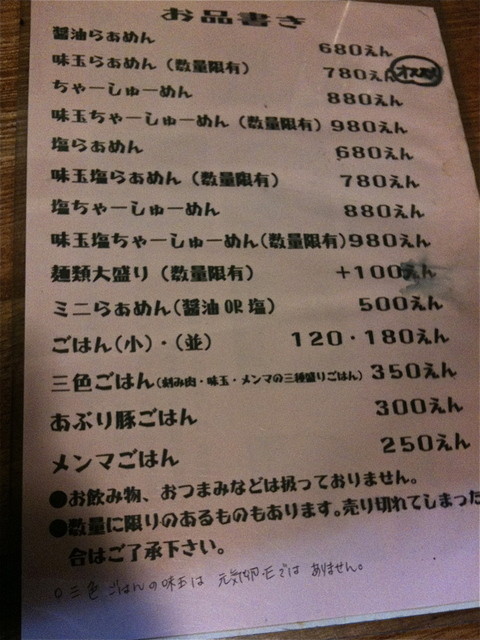 お品書き
醤油らぁめん 680えん
味玉らぁめん（数量限有） 780えん オススメ
ちゃーしゅーめん 880えん
味玉ちゃーしゅーめん（数量限有） 980えん
塩らぁめん 680えん
味玉塩らぁめん（数量限有） 780えん
塩ちゃーしゅーめん 880えん
味玉塩ちゃーしゅーめん（数量限有） 980えん
麺類大盛り（数量限有） +100えん
ミニらぁめん（醤油OR塩） 500えん
ごはん（小）・（並） 120・180えん
三色ごはん（刻み肉・味玉・メンマの三種盛りごはん） 350えん
あぶり豚ごはん 300えん
メンマごはん 250えん
●お飲み物、おつまみなどは扱っておりません。
●数量に限りのあるものもあります。売り切れてしまった
合はご了承下さい。
○三色ごはんの味玉は 元気卵ではありません。